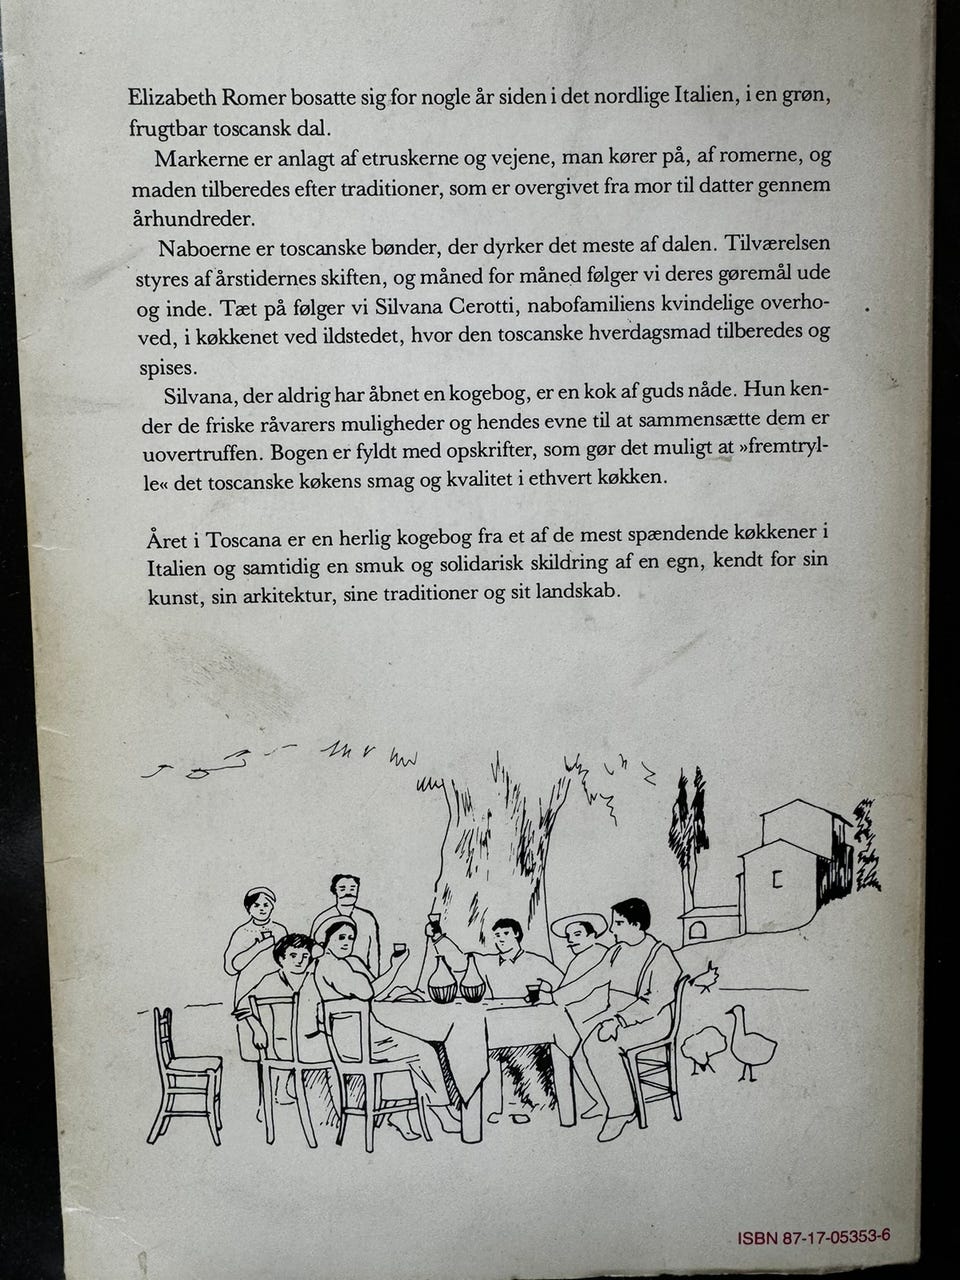 Elizabeth Romer bosatte sig for nogle år siden i det nordlige Italien, i en grøn,
frugtbar toscansk dal.
Markerne er anlagt af etruskerne og vejene, man kører på, af romerne, og
maden tilberedes efter traditioner, som er overgivet fra mor til datter gennem
århundreder.
Naboerne er toscanske bønder, der dyrker det meste af dalen. Tilværelsen
styres af årstidernes skiften, og måned for måned følger vi deres gøremål ude
og inde. Tæt på følger vi Silvana Cerotti, nabofamiliens kvindelige overho-
ved, i køkkenet ved ildstedet, hvor den toscanske hverdagsmad tilberedes og
spises.
Silvana, der aldrig har åbnet en kogebog, er en kok af guds nåde. Hun ken-
der de friske råvarers muligheder og hendes evne til at sammensætte dem er
uovertruffen. Bogen er fyldt med opskrifter, som gør det muligt at »fremtryl-
le« det toscanske køkens smag og kvalitet i ethvert køkken.
Året i Toscana er en herlig kogebog fra et af de mest spændende køkkener i
Italien og samtidig en smuk og solidarisk skildring af en egn, kendt for sin
kunst, sin arkitektur, sine traditioner og sit landskab.
ISBN 87-17-05353-6